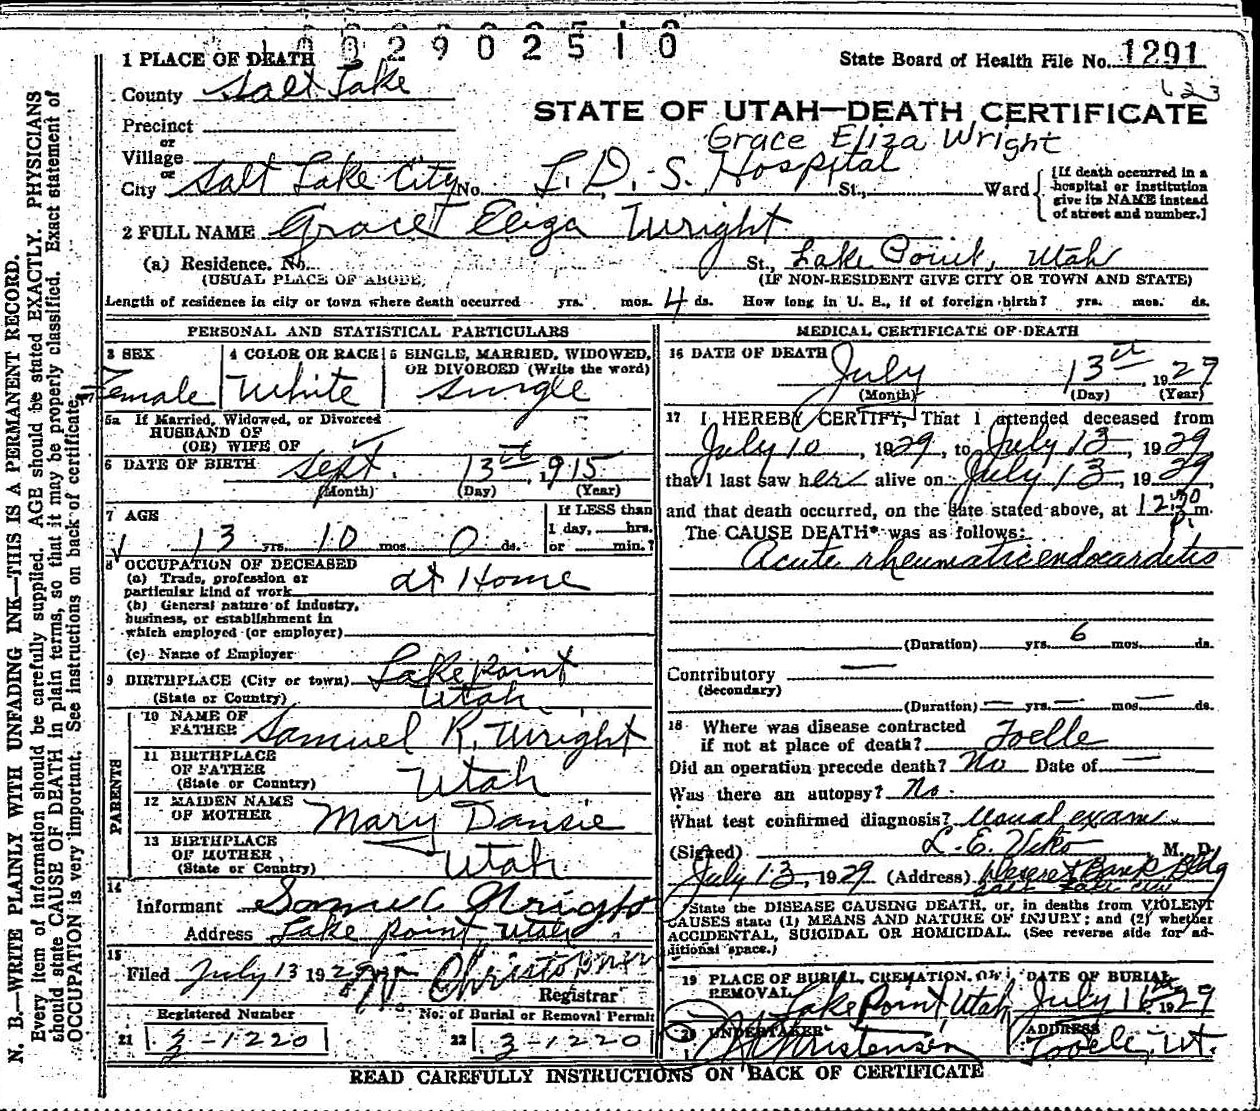 1 0 0 2 9 0 2 5 1 0
1 PLACE OF DEATH
State Board of Health File No. 1291
County Salt Lake
623
STATE OF UTAH—DEATH CERTIFICATE
Precinct
or
Village
Grace Eliza Wright
or
City Salt Lake City No. L. D. S. Hospital St., Ward
[If death occurred in a
hospital or institution
give its NAME instead
of street and number.]
2 FULL NAME Grace Eliza Wright
(a) Residence. No. St., Lake Point, Utah
(USUAL PLACE OF ABODE) (IF NON-RESIDENT GIVE CITY OR TOWN AND STATE)
Length of residence in city or town where death occurred yrs. mos. 4 ds. How long in U. S., if of foreign birth? yrs. mos. ds.
PERSONAL AND STATISTICAL PARTICULARS
3 SEX
Female
4 COLOR OR RACE
White
5 SINGLE, MARRIED, WIDOWED,
OR DIVORCED (Write the word)
Single
5a If Married, Widowed, or Divorced
HUSBAND OF
(OR) WIFE OF
6 DATE OF BIRTH Sept. 13th, 1915
(Month) (Day) (Year)
7 AGE
13 yrs. 10 mos. 0 ds.
If LESS than
1 day, hrs.
or min.?
8 OCCUPATION OF DECEASED
(a) Trade, profession or
particular kind of work at Home
(b) General nature of industry,
business, or establishment in
which employed (or employer)
(c) Name of Employer
9 BIRTHPLACE (City or town) Lake Point
(State or Country) Utah
PARENTS
10 NAME OF
FATHER Samuel R. Wright
11 BIRTHPLACE
OF FATHER
(State or Country) Utah
12 MAIDEN NAME
OF MOTHER Mary Dansie
13 BIRTHPLACE
OF MOTHER
(State or Country) Utah
14
Informant Wright
Address Lake Point Utah
15
Filed July 13 1929
Registrar
Registered Number
21 3-1220
No. of Burial or Removal Permit
22 3-1220
MEDICAL CERTIFICATE OF DEATH
16 DATE OF DEATH
July 13th, 1929
(Month) (Day) (Year)
17 I HEREBY CERTIFY, That I attended deceased from
July 10, 1929, to July 13, 1929
that I last saw her alive on July 13, 1929
and that death occurred, on the date stated above, at 12:30 P. m.
The CAUSE DEATH* was as follows:
Acute rheumatic endocarditis
(Duration) yrs. 6 mos. ds.
Contributory —
(Secondary)
(Duration) — yrs. — mos. — ds.
18 Where was disease contracted
if not at place of death? Toelle
Did an operation precede death? No Date of —
Was there an autopsy? No.
What test confirmed diagnosis? Usual exam
(Signed) L. E. Viko, M. D.
July 13, 1929 (Address) Deseret Bank Bldg
Salt Lake City
*State the DISEASE CAUSING DEATH, or, in deaths from VIOLENT
CAUSES state (1) MEANS AND NATURE OF INJURY; and (2) whether
ACCIDENTAL, SUICIDAL OR HOMICIDAL. (See reverse side for ad-
ditional space.)
19 PLACE OF BURIAL, CREMATION, OR
REMOVAL Lake Point, Utah
DATE OF BURIAL
July 16th 1929
20 UNDERTAKER
Christensen
ADDRESS
Tooele, Ut.
READ CAREFULLY INSTRUCTIONS ON BACK OF CERTIFICATE
N. B.—WRITE PLAINLY WITH UNFADING INK—THIS IS A PERMANENT RECORD.
Every item of information should be carefully supplied. AGE should be stated EXACTLY. PHYSICIANS
should state CAUSE OF DEATH in plain terms, so that it may be properly classified. Exact statement of
OCCUPATION is very important. See instructions on back of certificate.